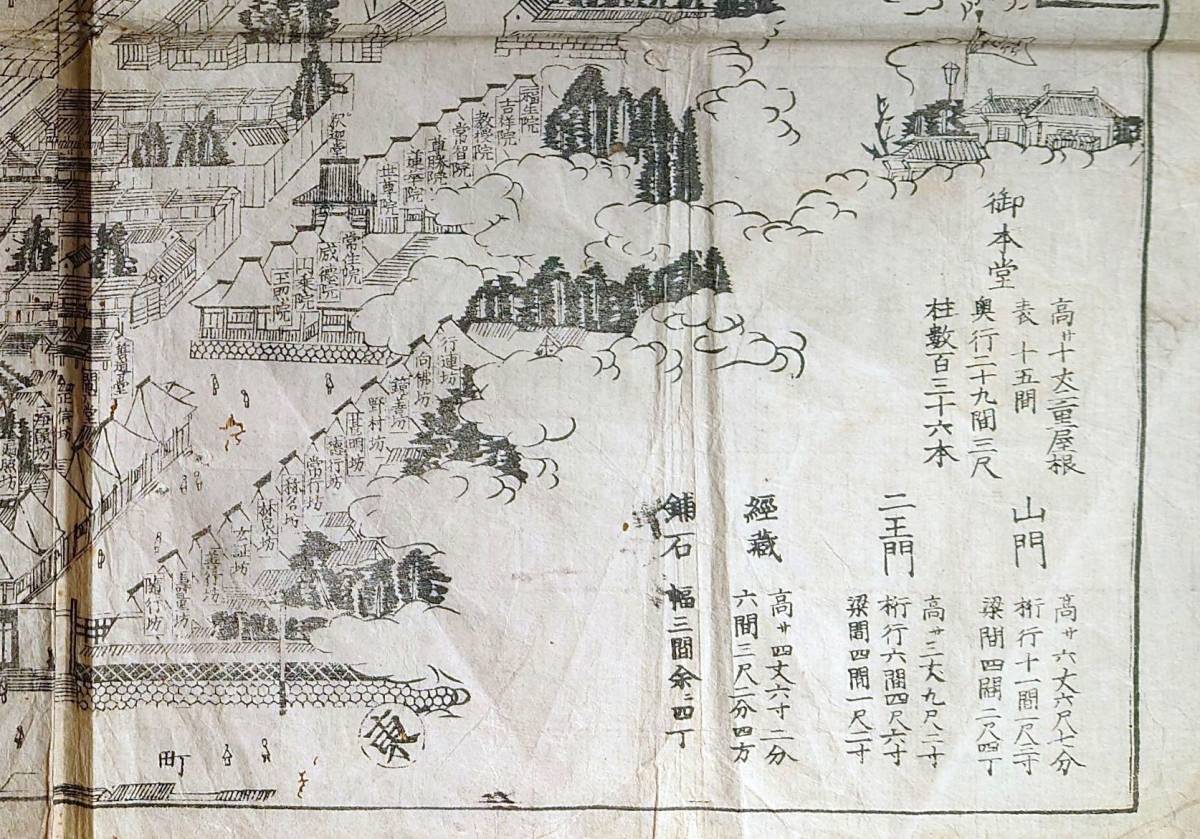 御本堂
高サ十丈二重屋根
表十五間
奥行二十九間三尺
柱數百三十六本
山門
高サ六丈六尺七分
桁行十一間一尺二寸
梁間四間二尺四丁
二王門
高サ三丈九尺二寸
桁行六間四尺六寸
梁間四間一尺二寸
經藏
高サ四丈六寸二分
六間三尺二分四方
鋪石
幅三間余ニ四丁
福生院
吉祥院
教授院
常智院
尊勝院
蓮華院
世尊院
釈迦堂
常住院
威德院
円乗院
玉照院
行蓮坊
向佛坊
鏡善坊
野村坊
甚明坊
德行坊
常行坊
林泉坊
玄証坊
善行坊
壽量坊
随行坊
東
町